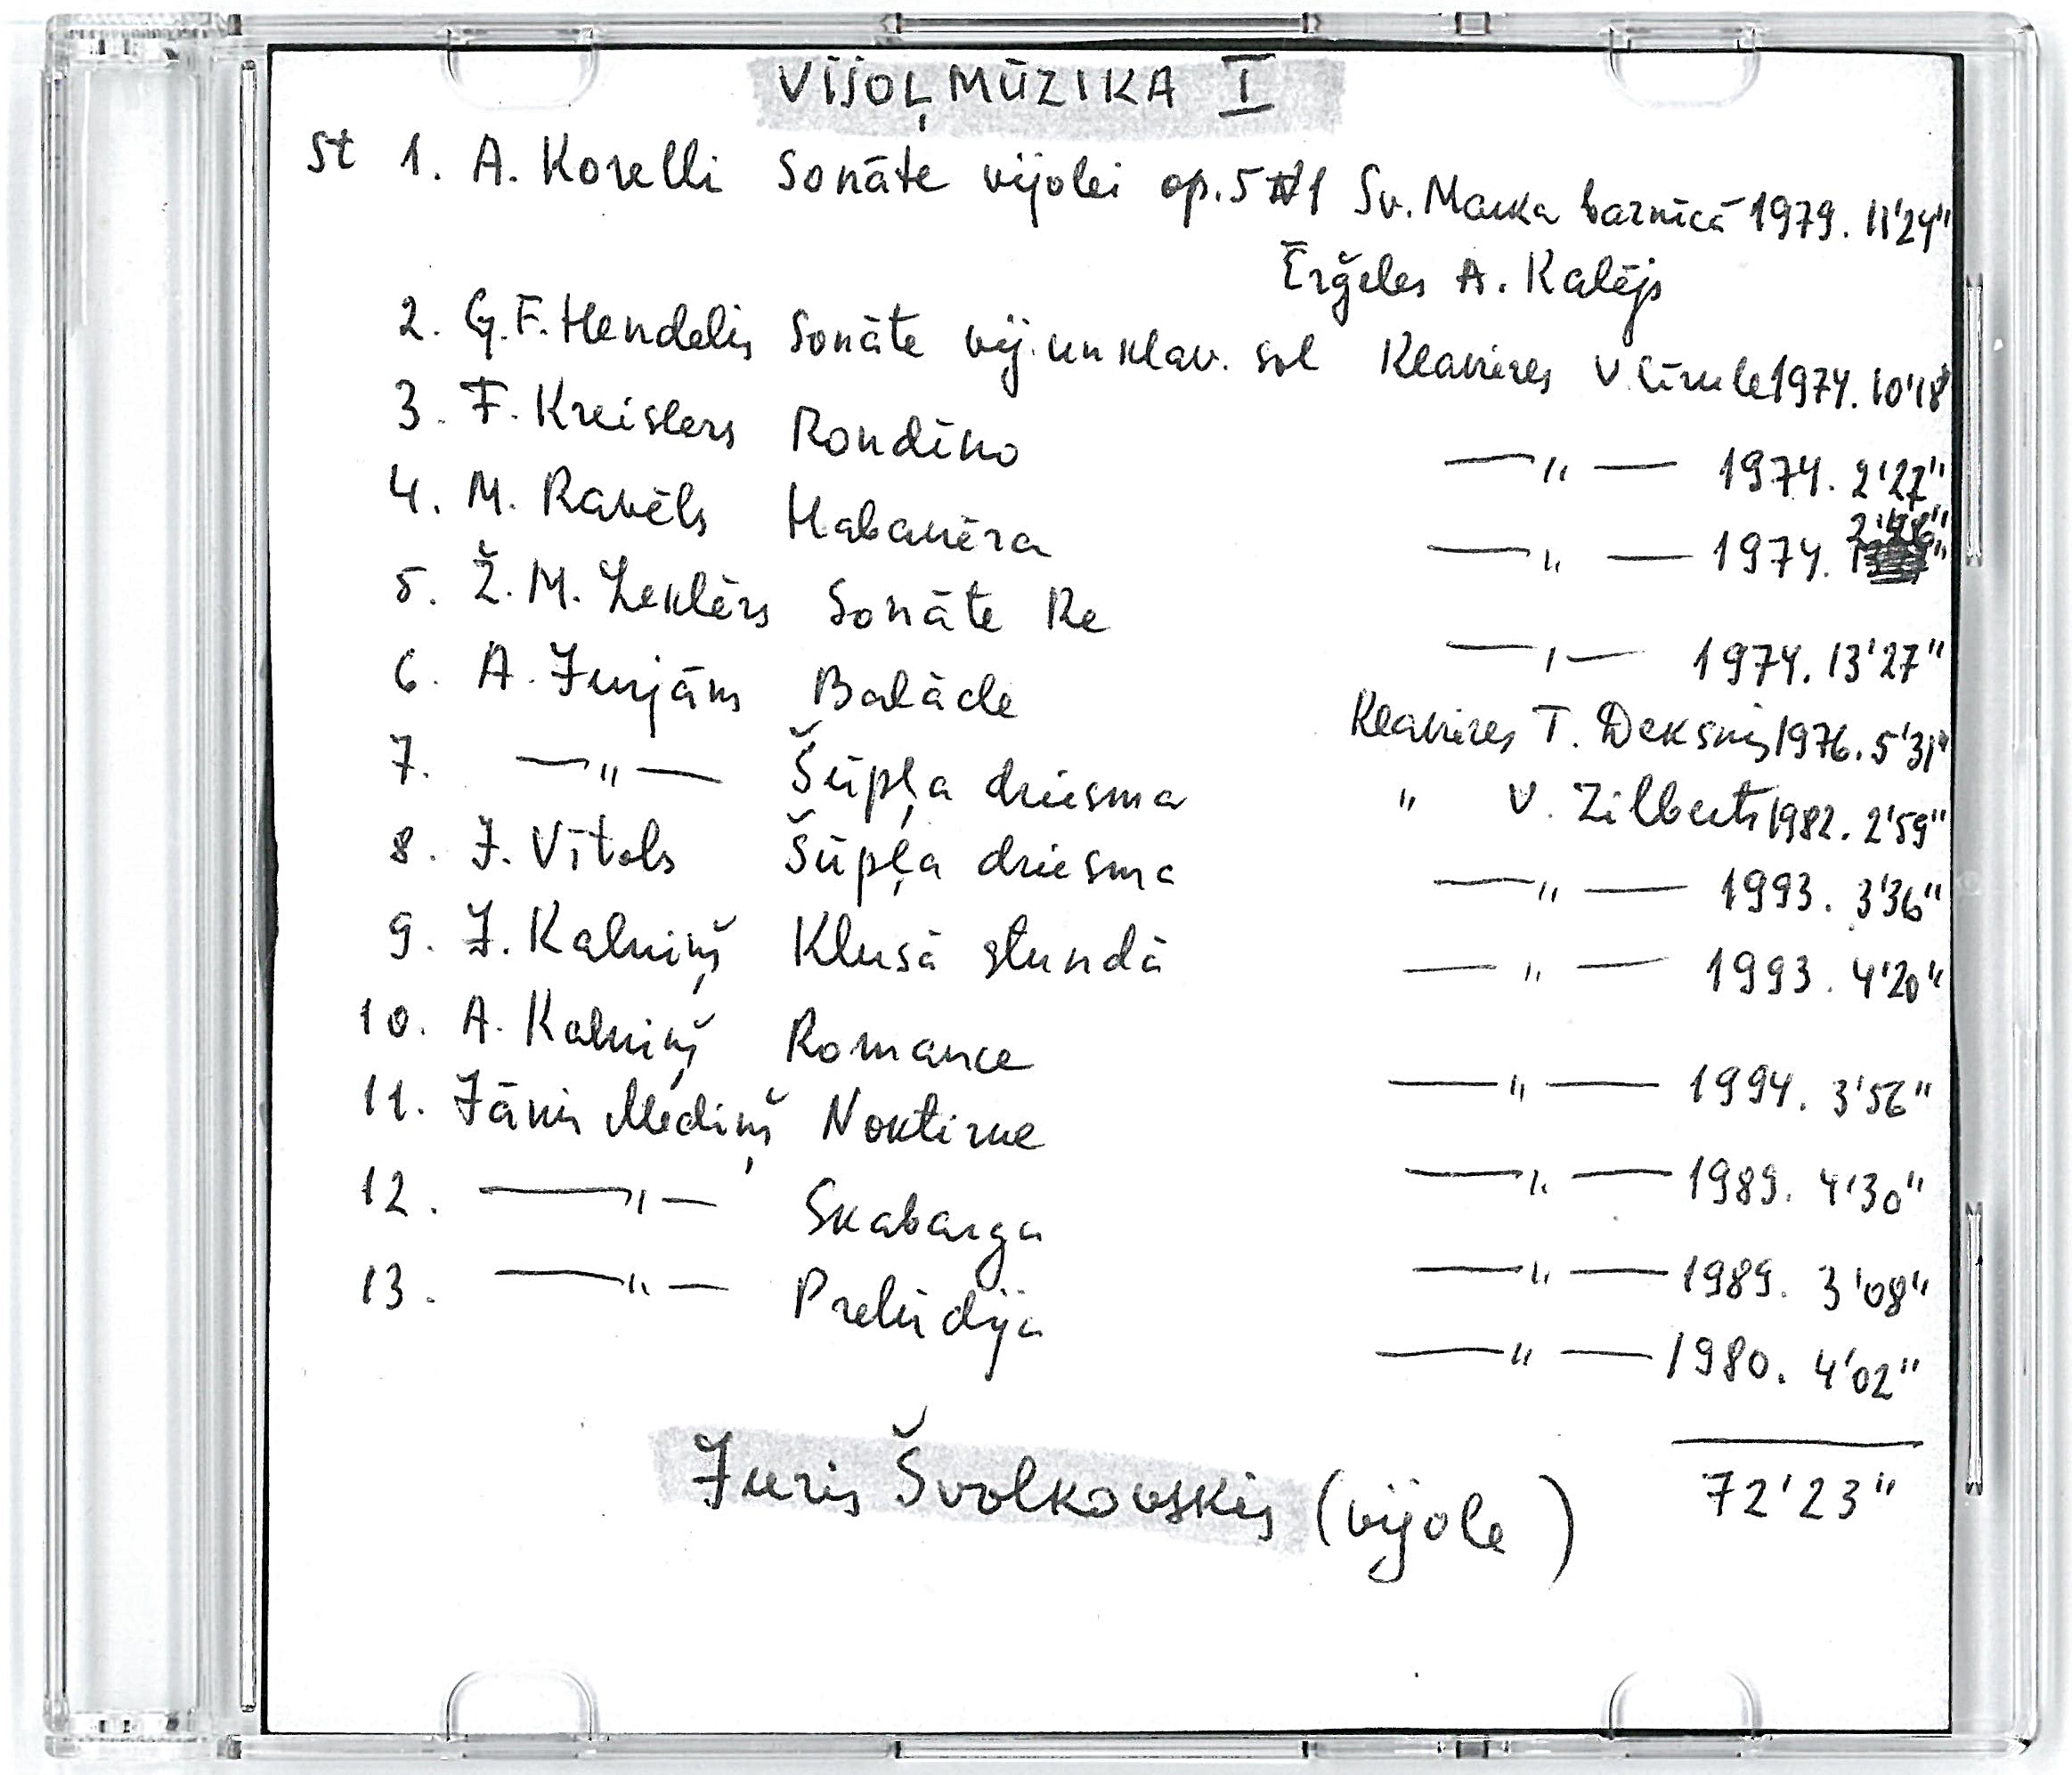 VIJOĻMŪZIKA I
St 1. A. Korelli Sonāte vijolei op.5 №1 Sv. Marka baznīcā 1979. 11'24"
Ērģeles A. Kalējs
2. G.F. Hendelis Sonāte vij. un klav. sol Klavieres V. Cīrule 1974. 10'18"
3. F. Kreislers Rondīno —"— 1974. 2'27"
4. M. Ravēls Habanēra —"— 1974.
5. Ž. M. Leklērs Sonāte Re —"— 1974. 13'27"
6. A. Jurjāns Balāde Klavieres T. Deksnis 1976. 5'31"
7. —"— Šūpļa dziesma " V. Zilberts 1982. 2'59"
8. J. Vītols Šūpļa dziesma —"— 1993. 3'36"
9. J. Kalniņš Klusā stundā —"— 1993. 4'20"
10. A. Kalniņš Romance —"— 1994. 3'56"
11. Jānis Mediņš Noktirne —"— 1989. 4'30"
12. —"— Skabarga —"— 1989. 3'08"
13. —"— Prelūdija —"— 1980. 4'02"
72'23"
Juris Švolkovskis (vijole)